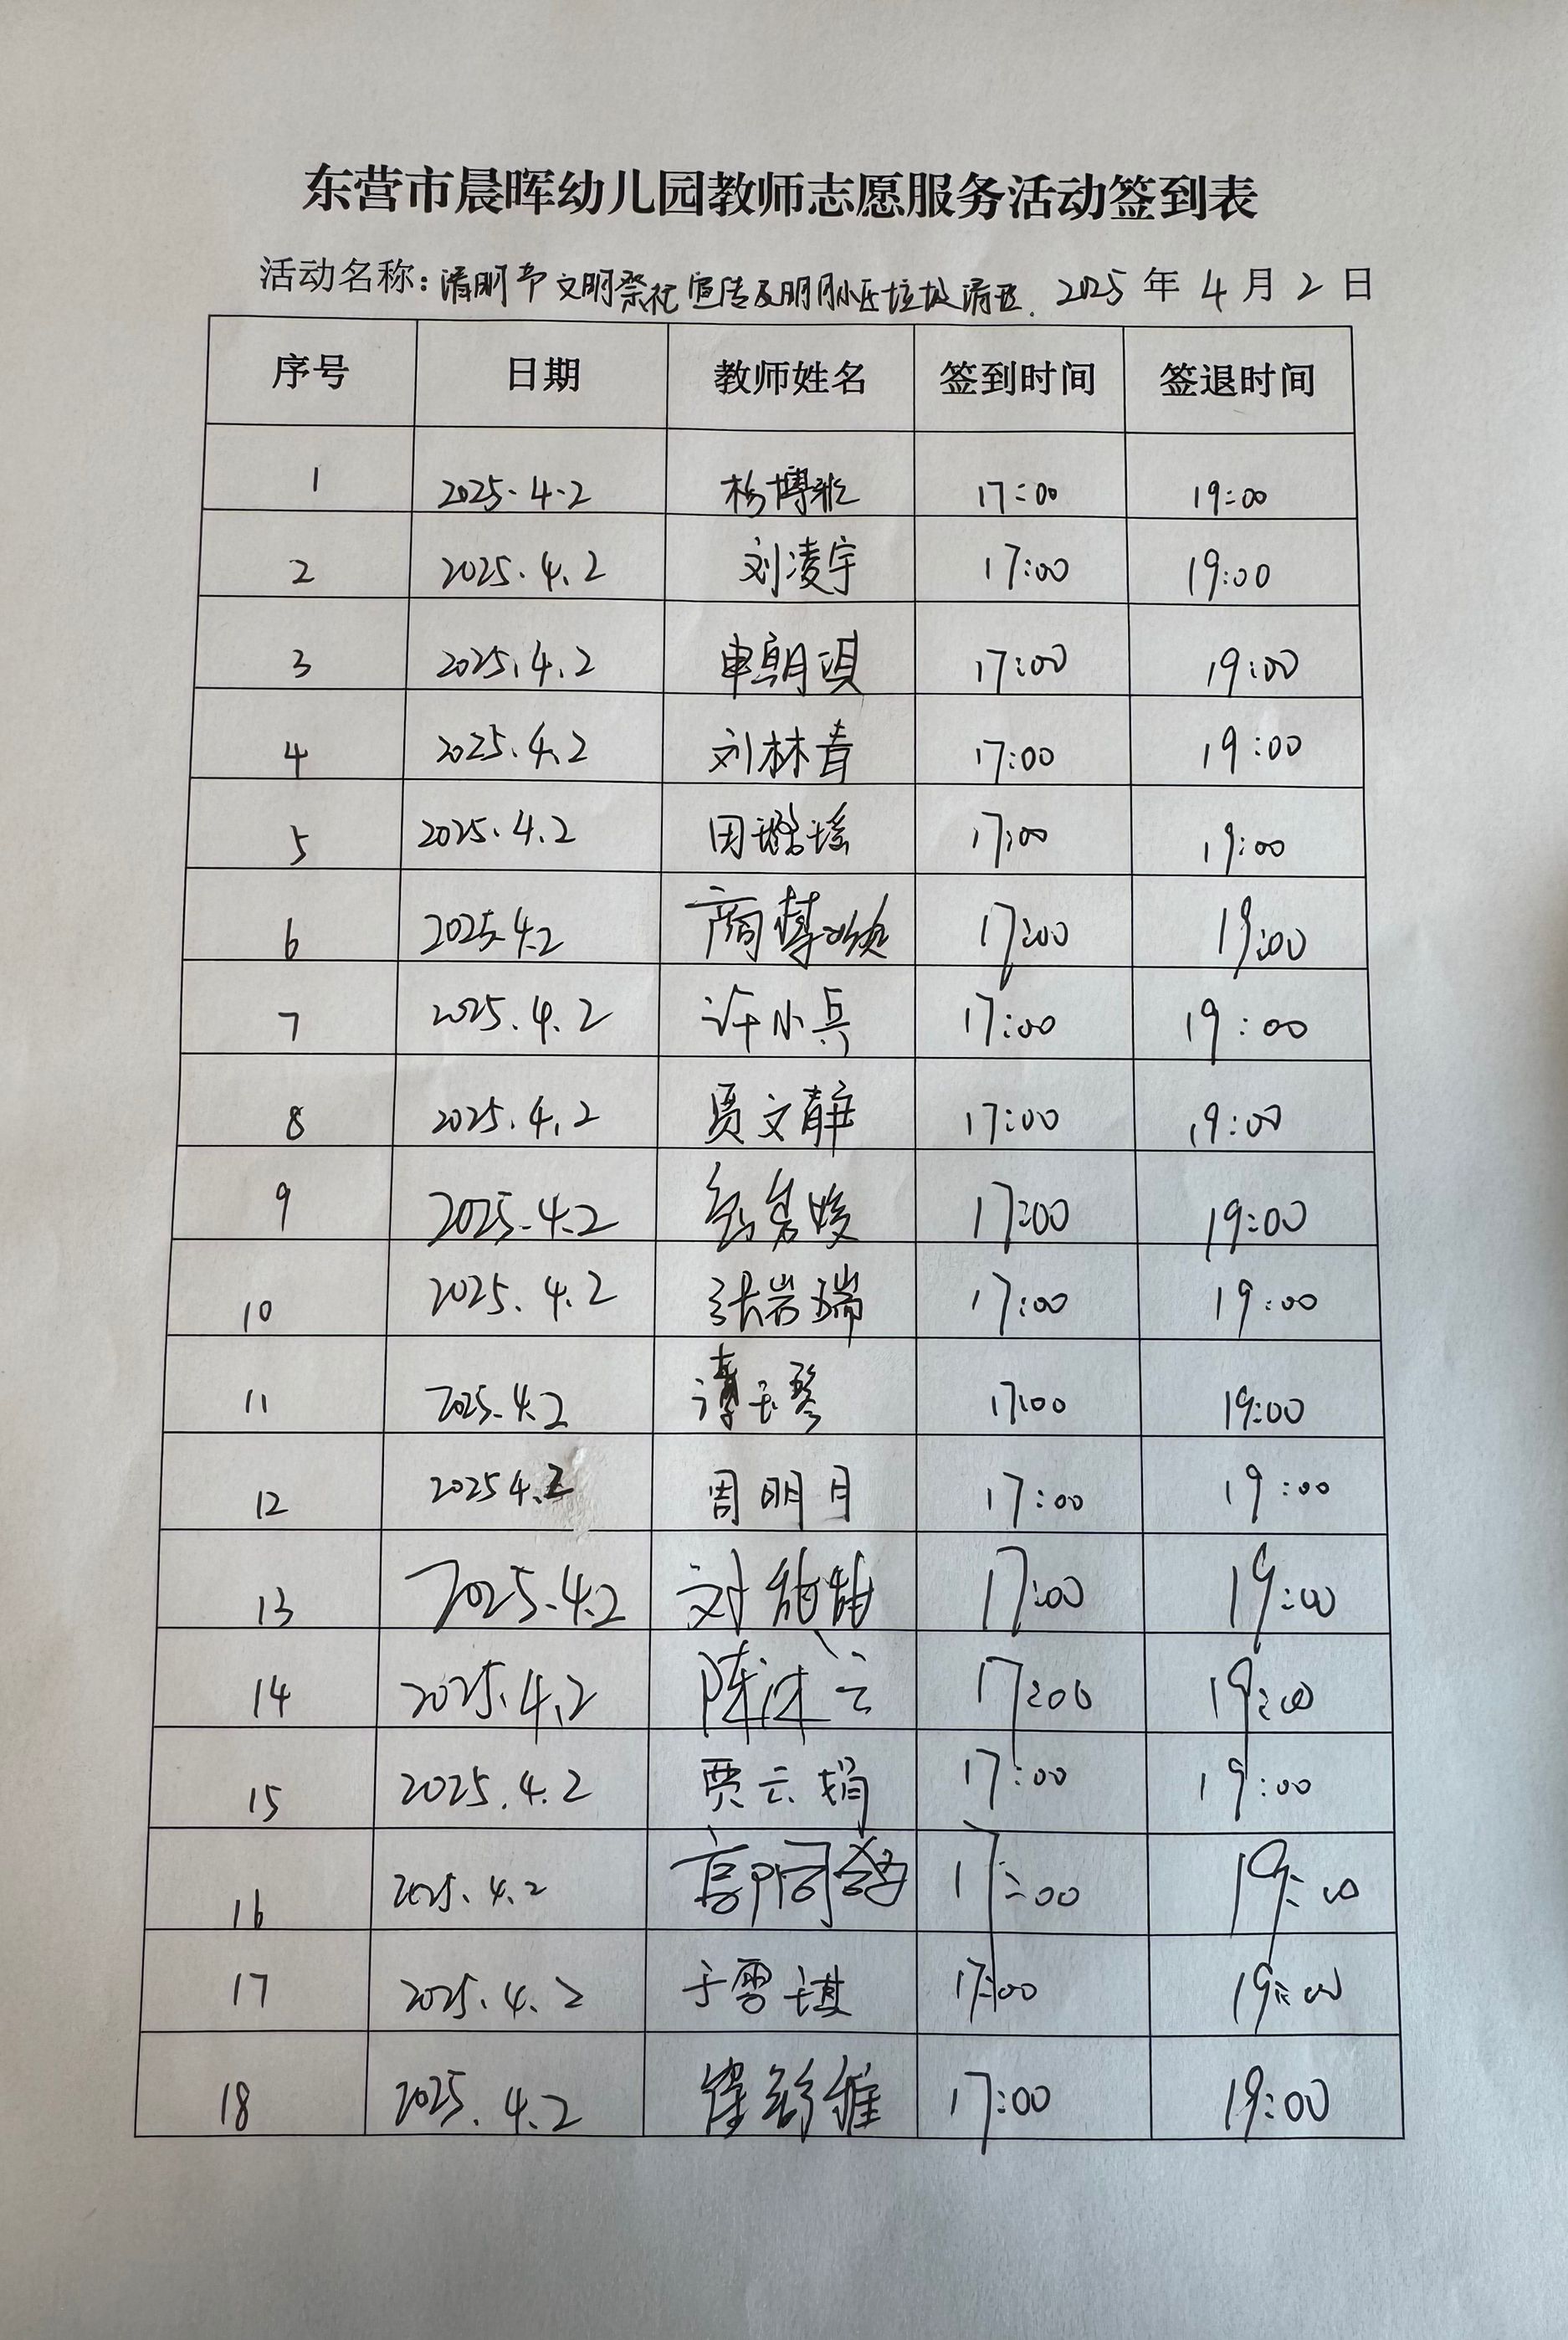 东营市晨晖幼儿园教师志愿服务活动签到表
活动名称：清明节文明祭祀宣传及明月小区垃圾清理. 2025年4月2日
序号 日期 教师姓名 签到时间 签退时间
1 2025.4.2 杨博雅 17:00 19:00
2 2025.4.2 刘凌宇 17:00 19:00
3 2025.4.2 申朝琪 17:00 19:00
4 2025.4.2 刘林青 17:00 19:00
5 2025.4.2 田璐瑶 17:00 19:00
6 2025.4.2 商梦 17:00 19:00
7 2025.4.2 许小兵 17:00 19:00
8 2025.4.2 贾文静 17:00 19:00
9 2025.4.2 17:00 19:00
10 2025.4.2 张岩瑞 17:00 19:00
11 2025.4.2 17:00 19:00
12 2025 4.2 周明月 17:00 19:00
13 2025.4.2 刘甜甜 17:00 19:00
14 2025.4.2 陈沐云 17:00 19:00
15 2025.4.2 贾云娟 17:00 19:00
16 2025.4.2 高 17:00 19:00
17 2025.4.2 于雪琪 17:00 19:00
18 2025.4.2 17:00 19:00